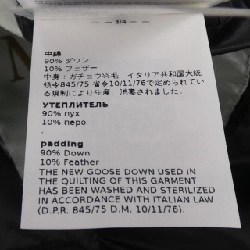 3/3
中綿
90% ダウン
10% フェザー
中身:ガチョウ羽毛 イタリア共和国大統
領令845/75 省令10/11/76で定められてい
る規制により生洗、消毒済み
УТЕПЛИТЕЛЬ
90% пух
10% перо
padding
90% Down
10% Feather
THE NEW GOOSE DOWN USED IN
THE QUILTING OF THIS GARMENT
HAS BEEN WASHED AND STERILIZED
IN ACCORDANCE WITH ITALIAN LAW
(D.P.R. 845/75 D.M. 10/11/76).